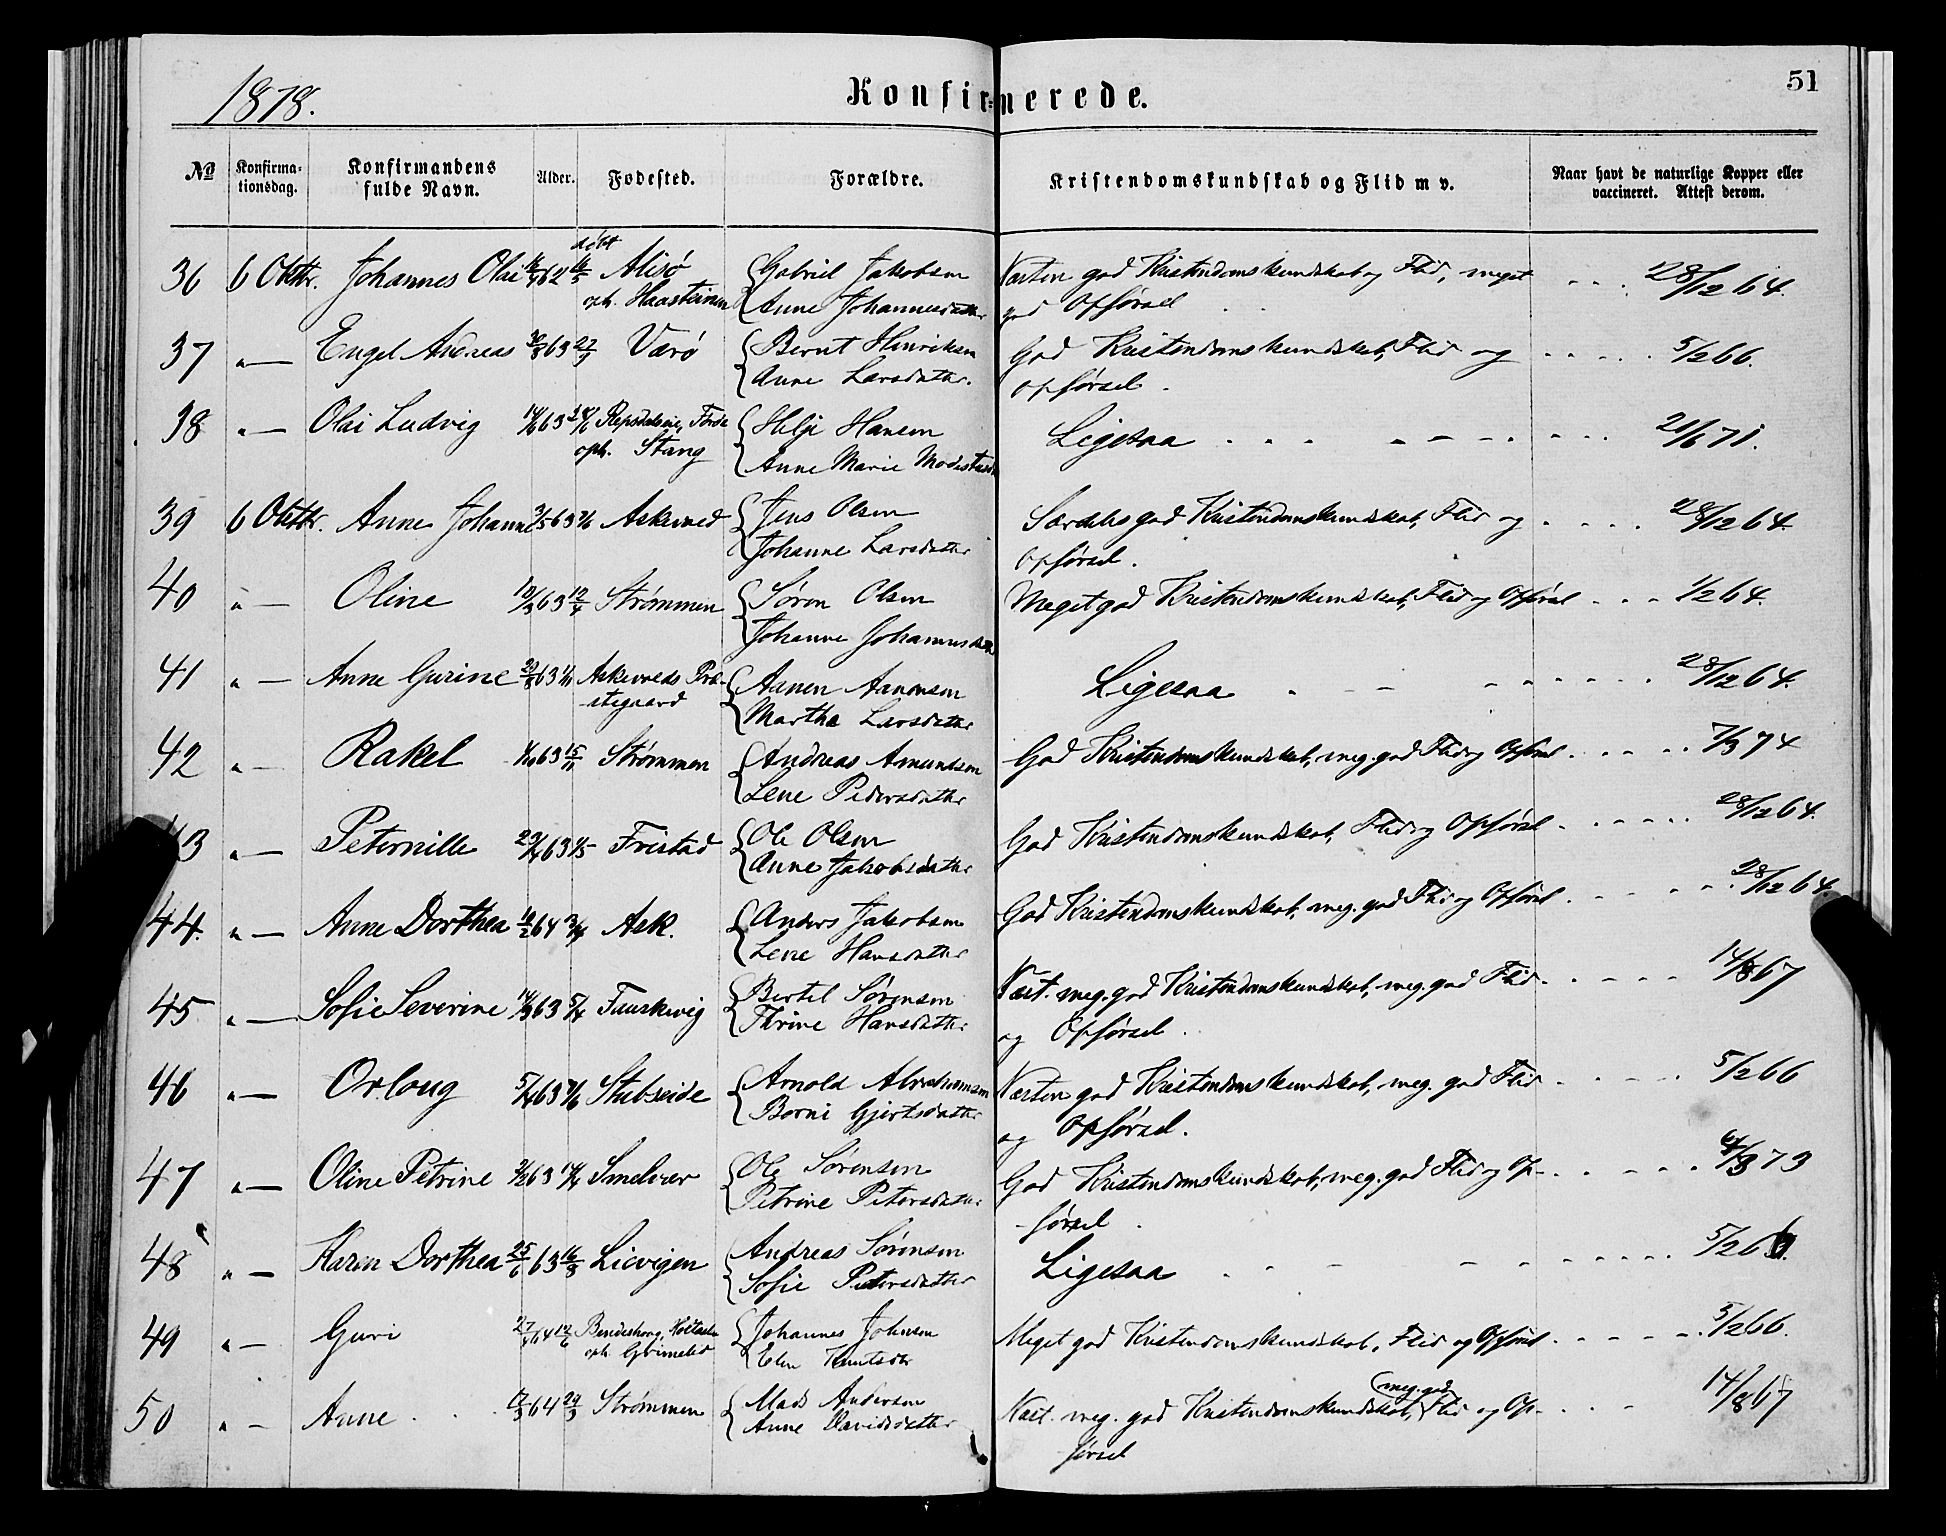 1878.
Konfirmerede.
51
No
Konfirma-
tionsdag.
Konfirmandens
fulde Navn.
Alder.
Fødested.
Forældre.
Kristendomskundskab og Flid m v.
Naar havt de naturlige Kopper eller
vaccineret. Attest derom.
døbt
36 6 Oktbr. Johannes Olai 62 Alisø Gabriel Jakobsen Næsten god Kristendomskundskab og Flid, meget 28/12 64.
oph. Haasteinen Anne Johannesdatter god Opførsel
37 " — Engel Andreas 63 Værø Bernt Henriksen God Kristendomskundskab, Flid og 5/2 66.
Anne Larsdatter. Opførsel.
38 " — Olai Ludvig 63 Førde Helje Hansen Ligesaa 21/6 71.
oph. Stang Anne Marie
39 6 Oktbr. Anne Johanne 3/5 63 7/6 Askevned Jens Olsen Særdeles god Kristendomskundskab, Flid og 28/12 64.
Johanne Larsdatter Opførsel.
40 " — Oline 63 12/4 Strømmen Søren Olsen Meget god Kristendomskundskab, Flid og Opførsel 1/2 64.
Johanne Johannesdatter
41 " — Anne Gurine 63 Askevneds Præ- Aanen Aanensen Ligesaa 28/12 64.
stegaard Martha Larsdatter
42 " — Rakel 1/10 63 15/11 Strømmen Andreas Amundsen God Kristendomskundskab, meg. god Flid og Opførsel 7/3 74
Lene Pedersdatter
43 " — Peternille 63 1/5 Fristad Ole Olsen God Kristendomskundskab, Flid og Opførsel 28/12 64.
Anne Jakobsdatter
44. " — Anne Dorthea 64 Ask. Anders Jakobsen God Kristendomskundskab, meg. god Flid og Opførsel 28/12 64.
Lene Hansdatter
45 " — Sofie Severine 14/3 63 5/4 Fuurkevig Bertel Sørensen Næst. meg. god Kristendomskundskab, meg. god Flid 14/8 67
Thrine Hansdatter og Opførsel.
46 " — Orloug 5/4 63 7/6 Stubseide Arnold Abrahamsen Næsten god Kristendomskundskab, meg. god Flid 5/2 66
Berni Gjertsdatter og Opførsel.
47 " — Oline Petrine 63 Smelvær Ole Sørensen God Kristendomskundskab, meg. god Flid og Op- 73
Petrine Petersdatter -førsel.
48 " — Karen Dorthea 25/6 63 16/8 Lievigen Andreas Sørensen Ligesaa 5/2 6
Sofie Petersdatter
49 " — Guri 64 12/6 Johannes Johnsen Meget god Kristendomskundskab, Flid og Opførsel 5/2 66.
oph. Grimelid Elen Knutsdtr
meg. god
50 " — Anne 64 Strømmen Mads Andersen Næst. meg. god Kristendomskundskab, Flid og Op- 14/8 67
Anne Davidsdatter førsel